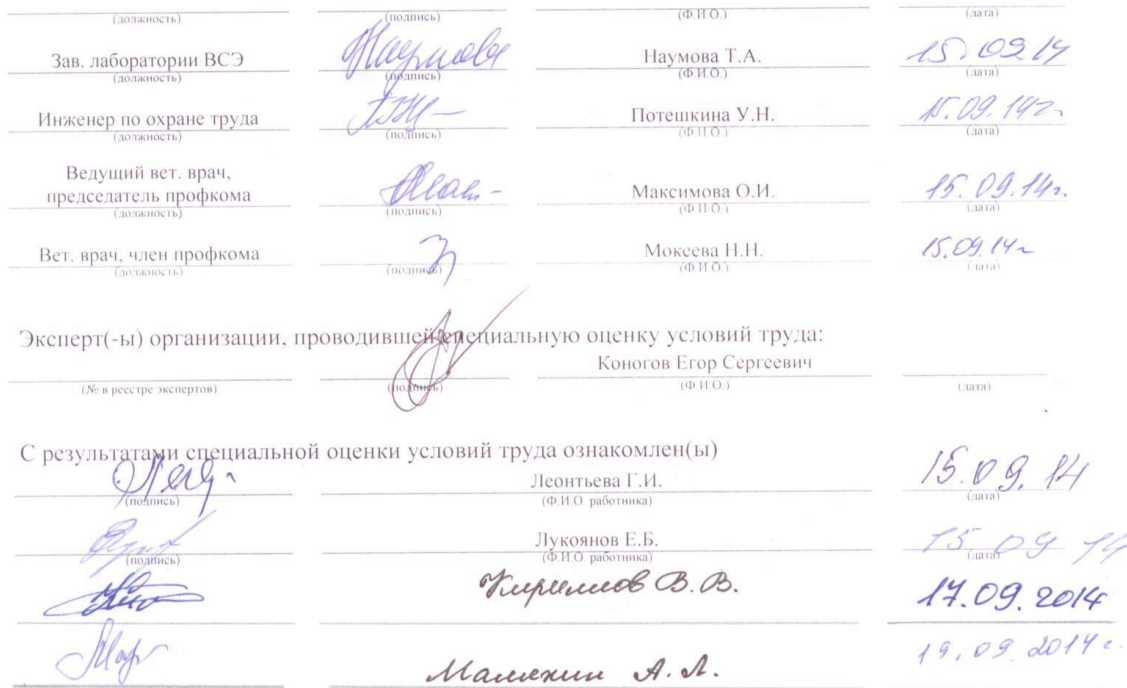 (должность) (подпись) (Ф.И.О.) (дата)
Зав. лаборатории ВСЭ Наумова Наумова Т.А. 15.09.14
(должность) (подпись) (Ф.И.О.) (дата)
Инженер по охране труда Потешкина У.Н. 15.09.14г.
(должность) (подпись) (Ф.И.О.) (дата)
Ведущий вет. врач,
председатель профкома Максимова О.И. 15.09.14г.
(должность) (подпись) (Ф.И.О.) (дата)
Вет. врач, член профкома Мокеева Н.Н. 15.09.14г
(должность) (подпись) (Ф.И.О.) (дата)
Эксперт(-ы) организации, проводившей специальную оценку условий труда:
Коногов Егор Сергеевич
(№ в реестре экспертов) (подпись) (Ф.И.О.) (дата)
С результатами специальной оценки условий труда ознакомлен(ы)
Леонтьева Г.И. 15.09.14
(подпись) (Ф.И.О. работника) (дата)
Лукоянов Е.Б. 15 09 14
(подпись) (Ф.И.О. работника) (дата)
Кириллов В.В. 17.09.2014
А.Л. 19.09.2014г.